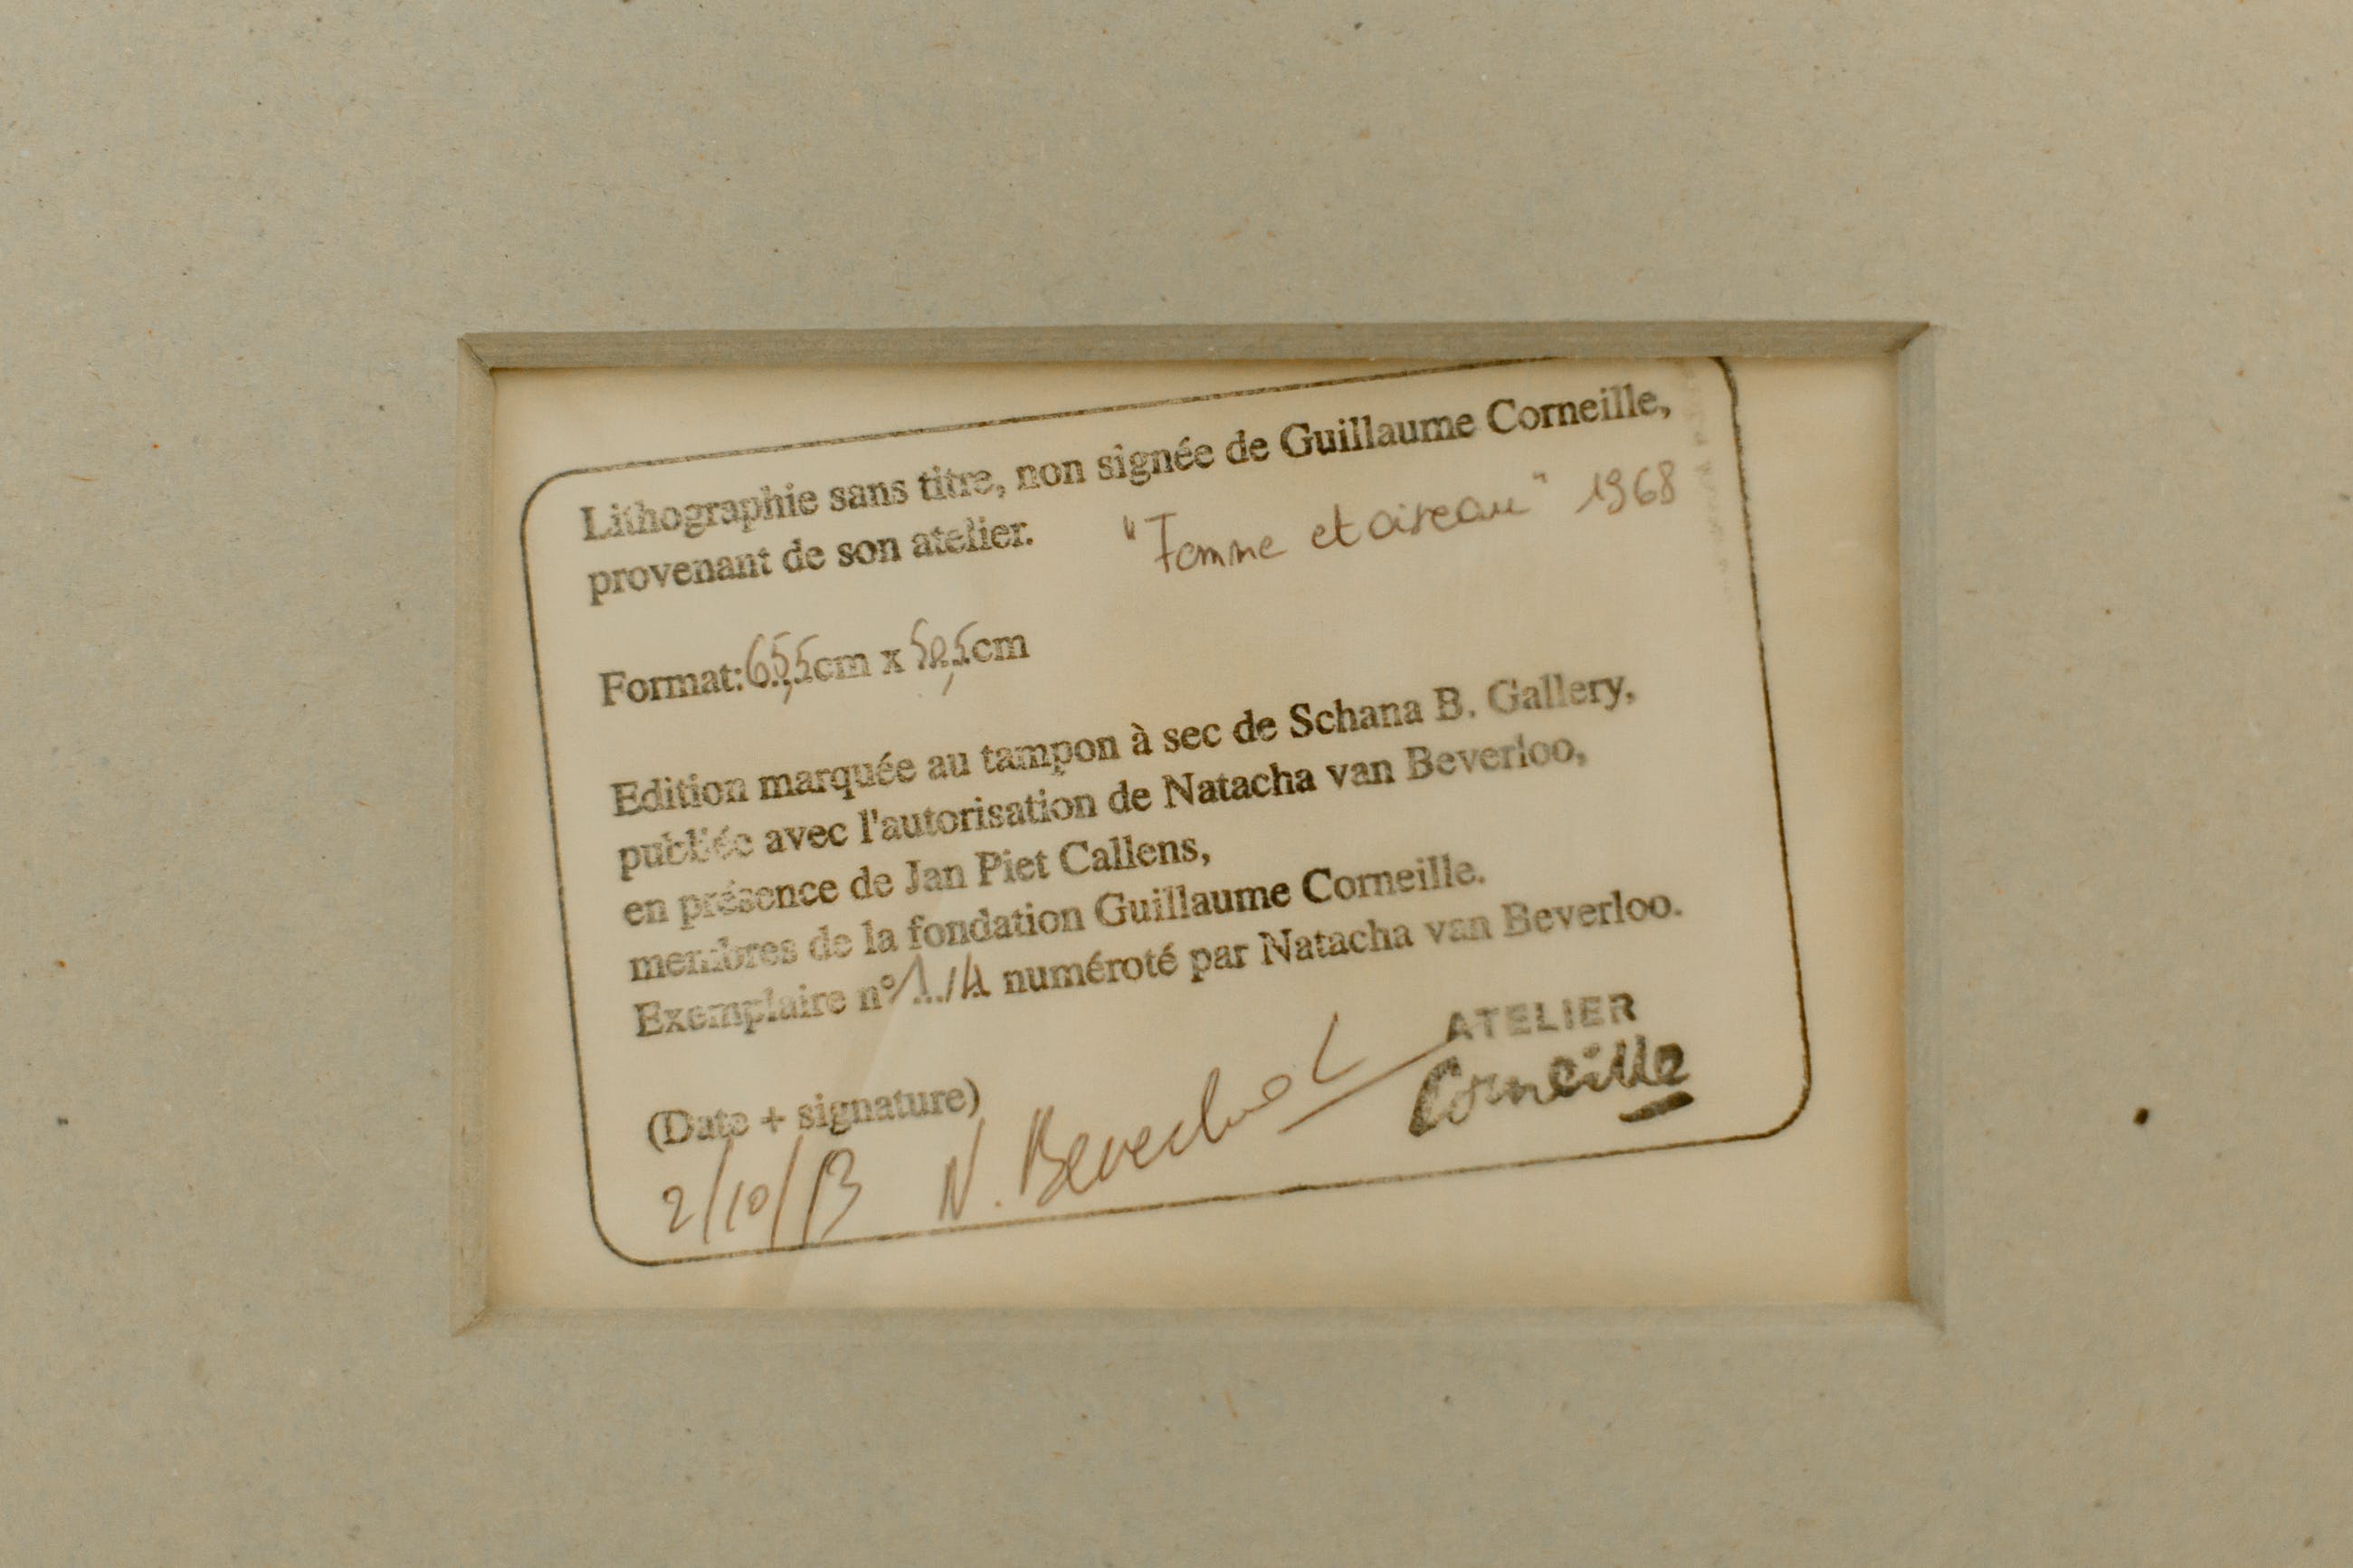 Lithographie sans titre, non signée de Guillaume Corneille,
provenant de son atelier. "Femme et oiseau" 1968
Format: 65,5cm x 50,5cm
Edition marquée au tampon à sec de Schana B. Gallery,
publiée avec l'autorisation de Natacha van Beverloo,
en présence de Jan Piet Callens,
membres de la fondation Guillaume Corneille.
Exemplaire n° 1/4 numéroté par Natacha van Beverloo.
ATELIER
Corneille
(Date + signature)
2/10/13 N. Beverloo